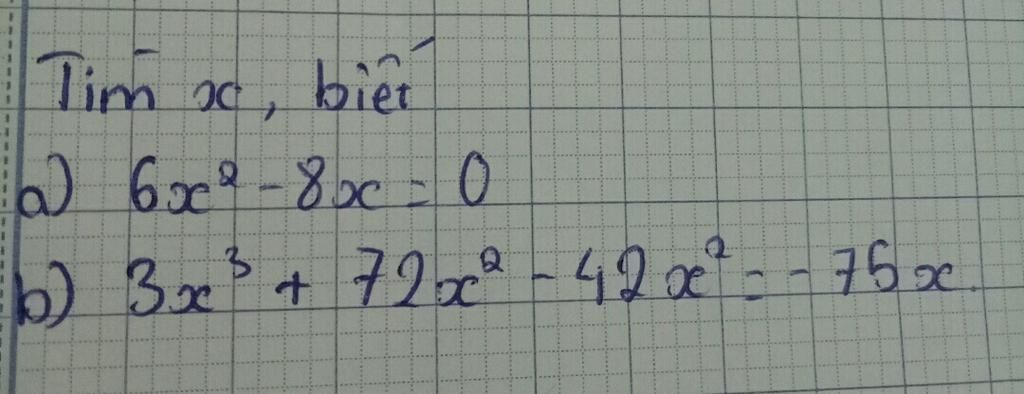 Tìm x, biết
a) 6x² - 8x = 0
b) 3x³ + 72x² - 42x² = - 75x.